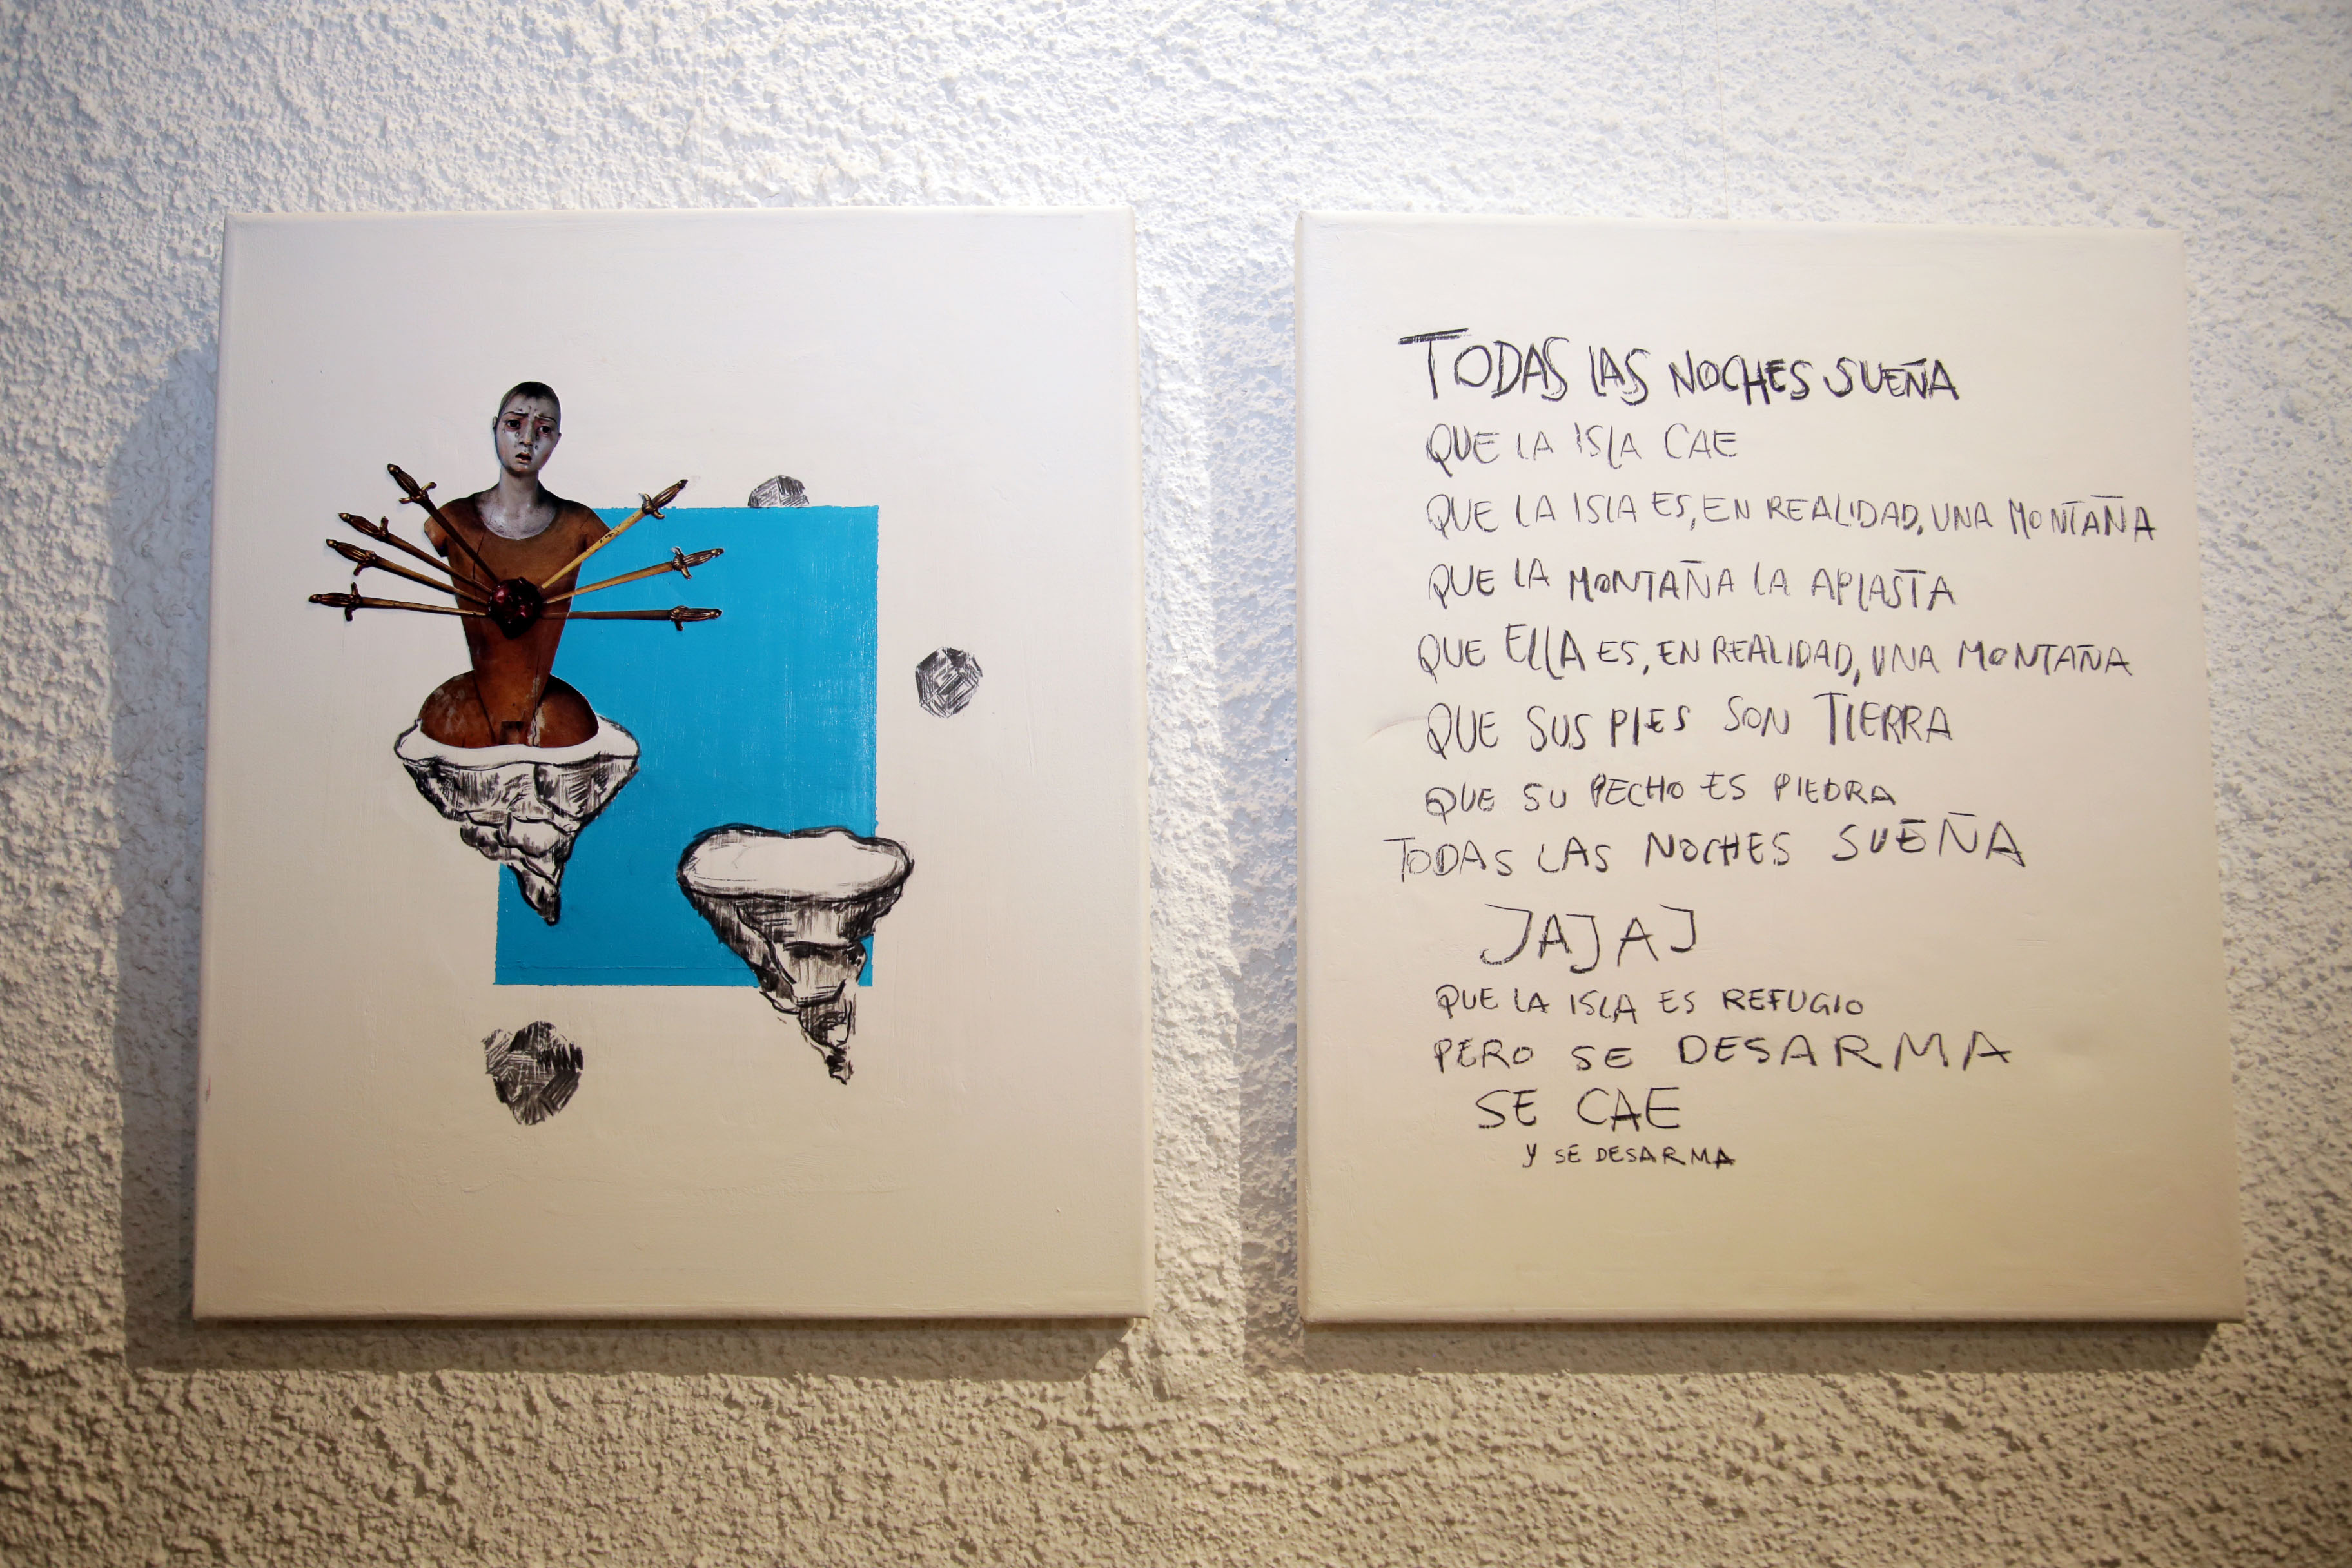 TODAS LAS NOCHES SUEÑA
QUE LA ISLA CAE
QUE LA ISLA ES, EN REALIDAD, UNA MONTAÑA
QUE LA MONTAÑA LA APLASTA
QUE ELLA ES, EN REALIDAD, UNA MONTAÑA
QUE SUS PIES SON TIERRA
QUE SU PECHO ES PIEDRA
TODAS LAS NOCHES SUEÑA
JAJAJ
QUE LA ISLA ES REFUGIO
PERO SE DESARMA
SE CAE
Y SE DESARMA